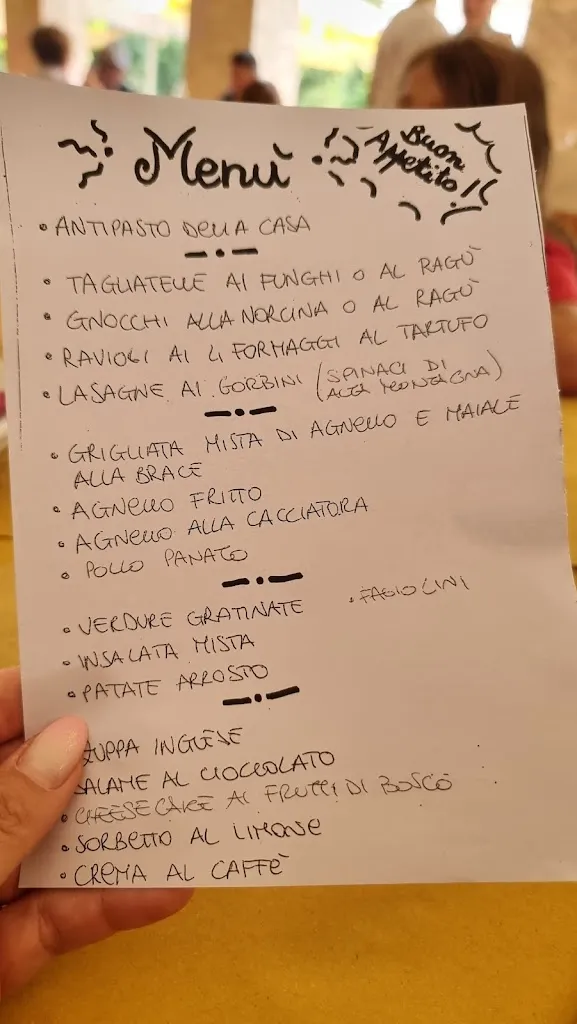 Menù
Buon
Appetito!
• ANTIPASTO DELLA CASA
• TAGLIATELLE AI FUNGHI O AL RAGÙ
• GNOCCHI ALLA NORCINA O AL RAGÙ
• RAVIOLI AI 4 FORMAGGI AL TARTUFO
• LASAGNE AI GORBINI (SPINACI DI
ALTA MONTAGNA)
• GRIGLIATA MISTA DI AGNELLO E MAIALE
ALLA BRACE
• AGNELLO FRITTO
• AGNELLO ALLA CACCIATORA
• POLLO PANATO
• VERDURE GRATINATE
• FAGIOLINI
• INSALATA MISTA
• PATATE ARROSTO
ZUPPA INGLESE
SALAME AL CIOCCOLATO
• CHEESE CAKE AI FRUTTI DI BOSCO
• SORBETTO AL LIMONE
• CREMA AL CAFFÈ